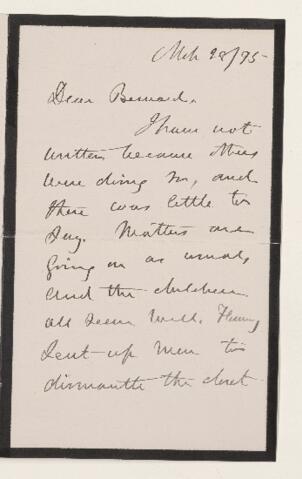 Mch 28/95
Dear Bernard.
I have not
written because they
were doing so, and
there was little to
say. Matters are
going on as usual,
and the children
all seem well.
sent up men to
dismantle the closet